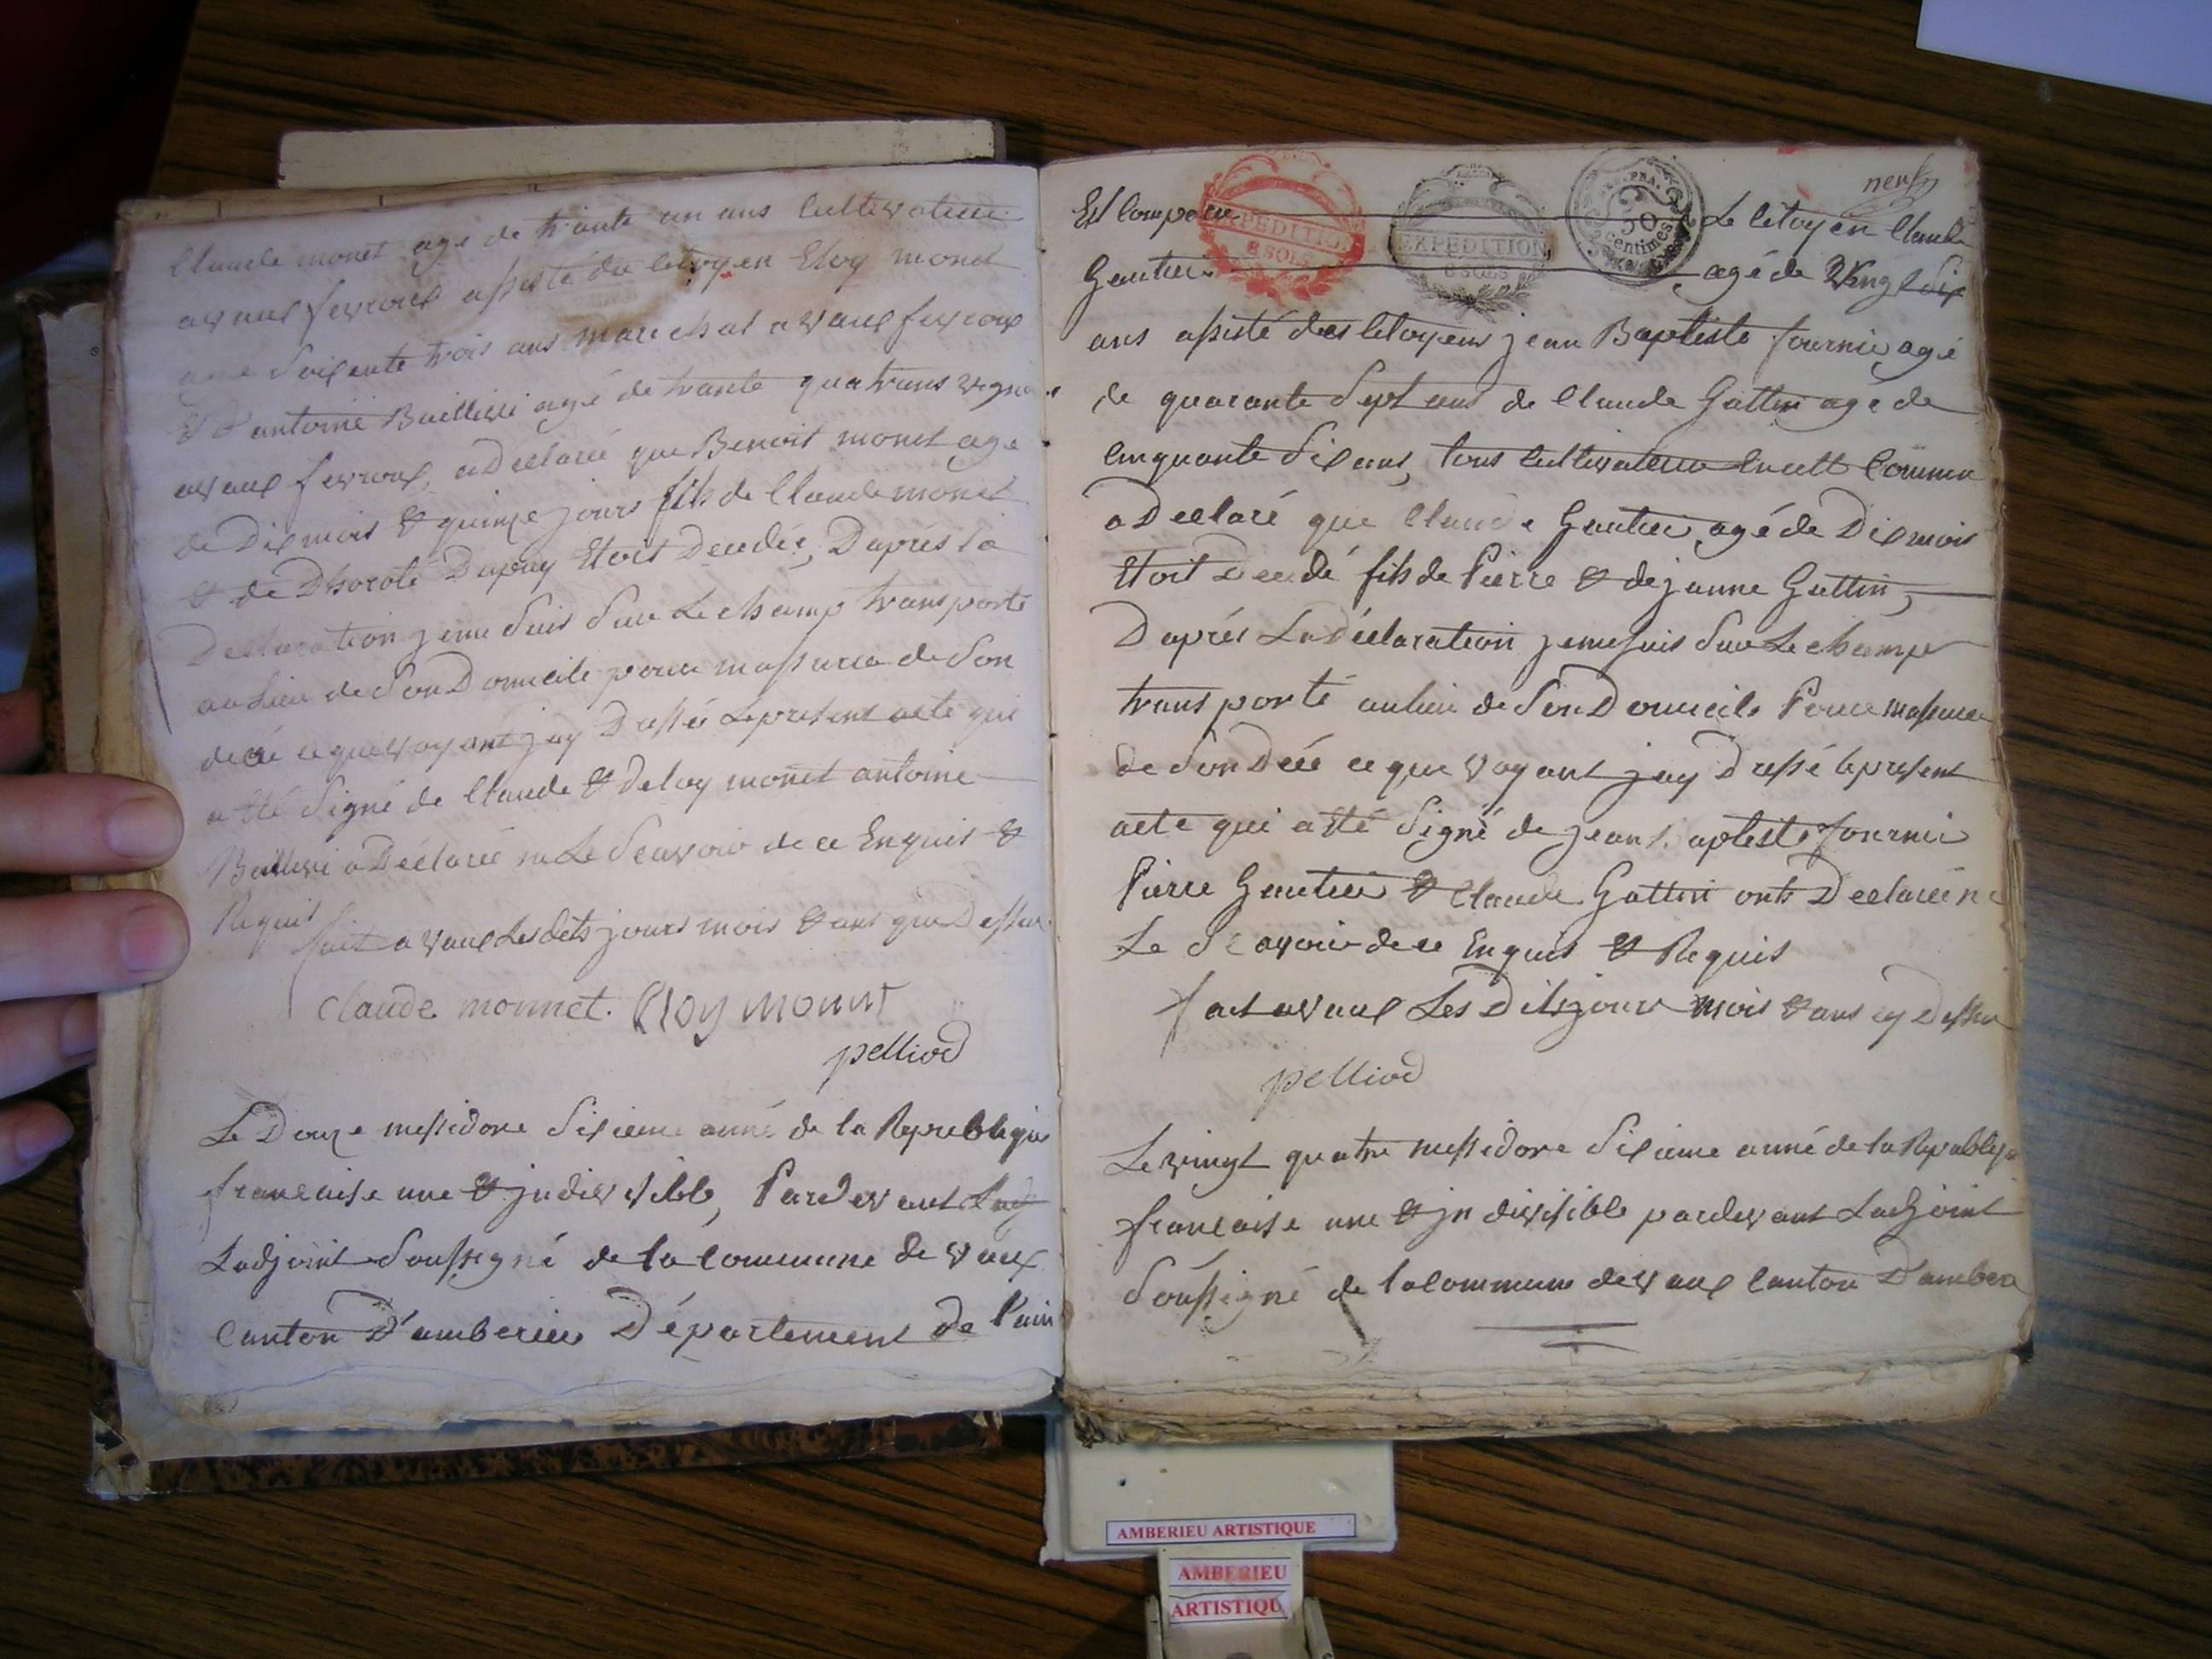 Claude monet agé de trante un ans Cultivateur
a vaux fevroux assisté du citoyen Eloy monet
agé Soixente trois ans marechal a vaux fevroux
Et D'antoine Buillivi agé de trante quatrans vigne
a vaux fevroux, a Declaré que Benoit monet age
de Dix mois & quinze jours fils de Claude monet
& de Dhoroté Dupuy Etoit Decedée, Daprés la
Declaration je me Suis Sur Le champ transporté
au Lieu de Son Domicile pour massurer de Son
decé ce que voyant jay Dressée Le present acte qui
a Eté Signé de Claude & Deloy monet antoine
Baillivi a Déclaré ne Le Scavoir de ce Enquis &
Requit
fait a vaux Les dits jours mois & ans que Dessus
claude monnet. Eloy monnet
pelliod
Le Douze messidore Sixieme anné de la Republique
francaise une & jndivisible, Pardevant
Ladjoint Soussigné de la Commune de vaux
Canton D'amberieu Département de l'ain
neuf
Est Comparu Le Citoyen Claude
EXPEDITION
8 SOLS
EXPEDITION
8 SOLS
50
Centimes
Gautier agé de Vingt Six
ans assisté des Citoyens jean Baptiste fournie agé
de quarante Sept ans de Claude Gattin agé de
Cinquante Six ans, tous Cultivateur En cett Commun
a Declaré que Claude Gautier, agé de Dix mois
Etoit Decedé fils de Pierre & de janne Guttin,
Daprés La Déclaration je me suis Sur Le champ
transporté au lieu de Son Domicile Pour massurer
de Son Décé ce que voyant jay Dressé le present
acte qui a Eté Signé de jean baptiste fournie
Pierre Gautier & Claude Gattin onts Declarée ne
Le Scavoir de ce Enquis & Requis
fait a vaux Les Dits jours mois & ans cy Dessu
pelliod
Le vingt quatre messidore Sixieme anné de la Republique
francaise une & jn divisible pardevant Ladjoint
Soussigné de la Commune de vaux Canton D'amber
AMBERIEU ARTISTIQUE
AMBERIEU
ARTISTIQU